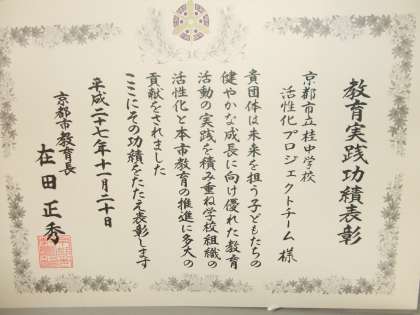 教育実践功績表彰
京都市立桂中学校
活性化プロジェクトチーム 様
貴団体は未来を担う子どもたちの
健やかな成長に向け優れた教育
活動の実践を積み重ね学校組織の
活性化と本市教育の推進に多大の
貢献をされました
ここにその功績をたたえ表彰します
平成二十七年十一月二十日
京都市教育長
在田正秀